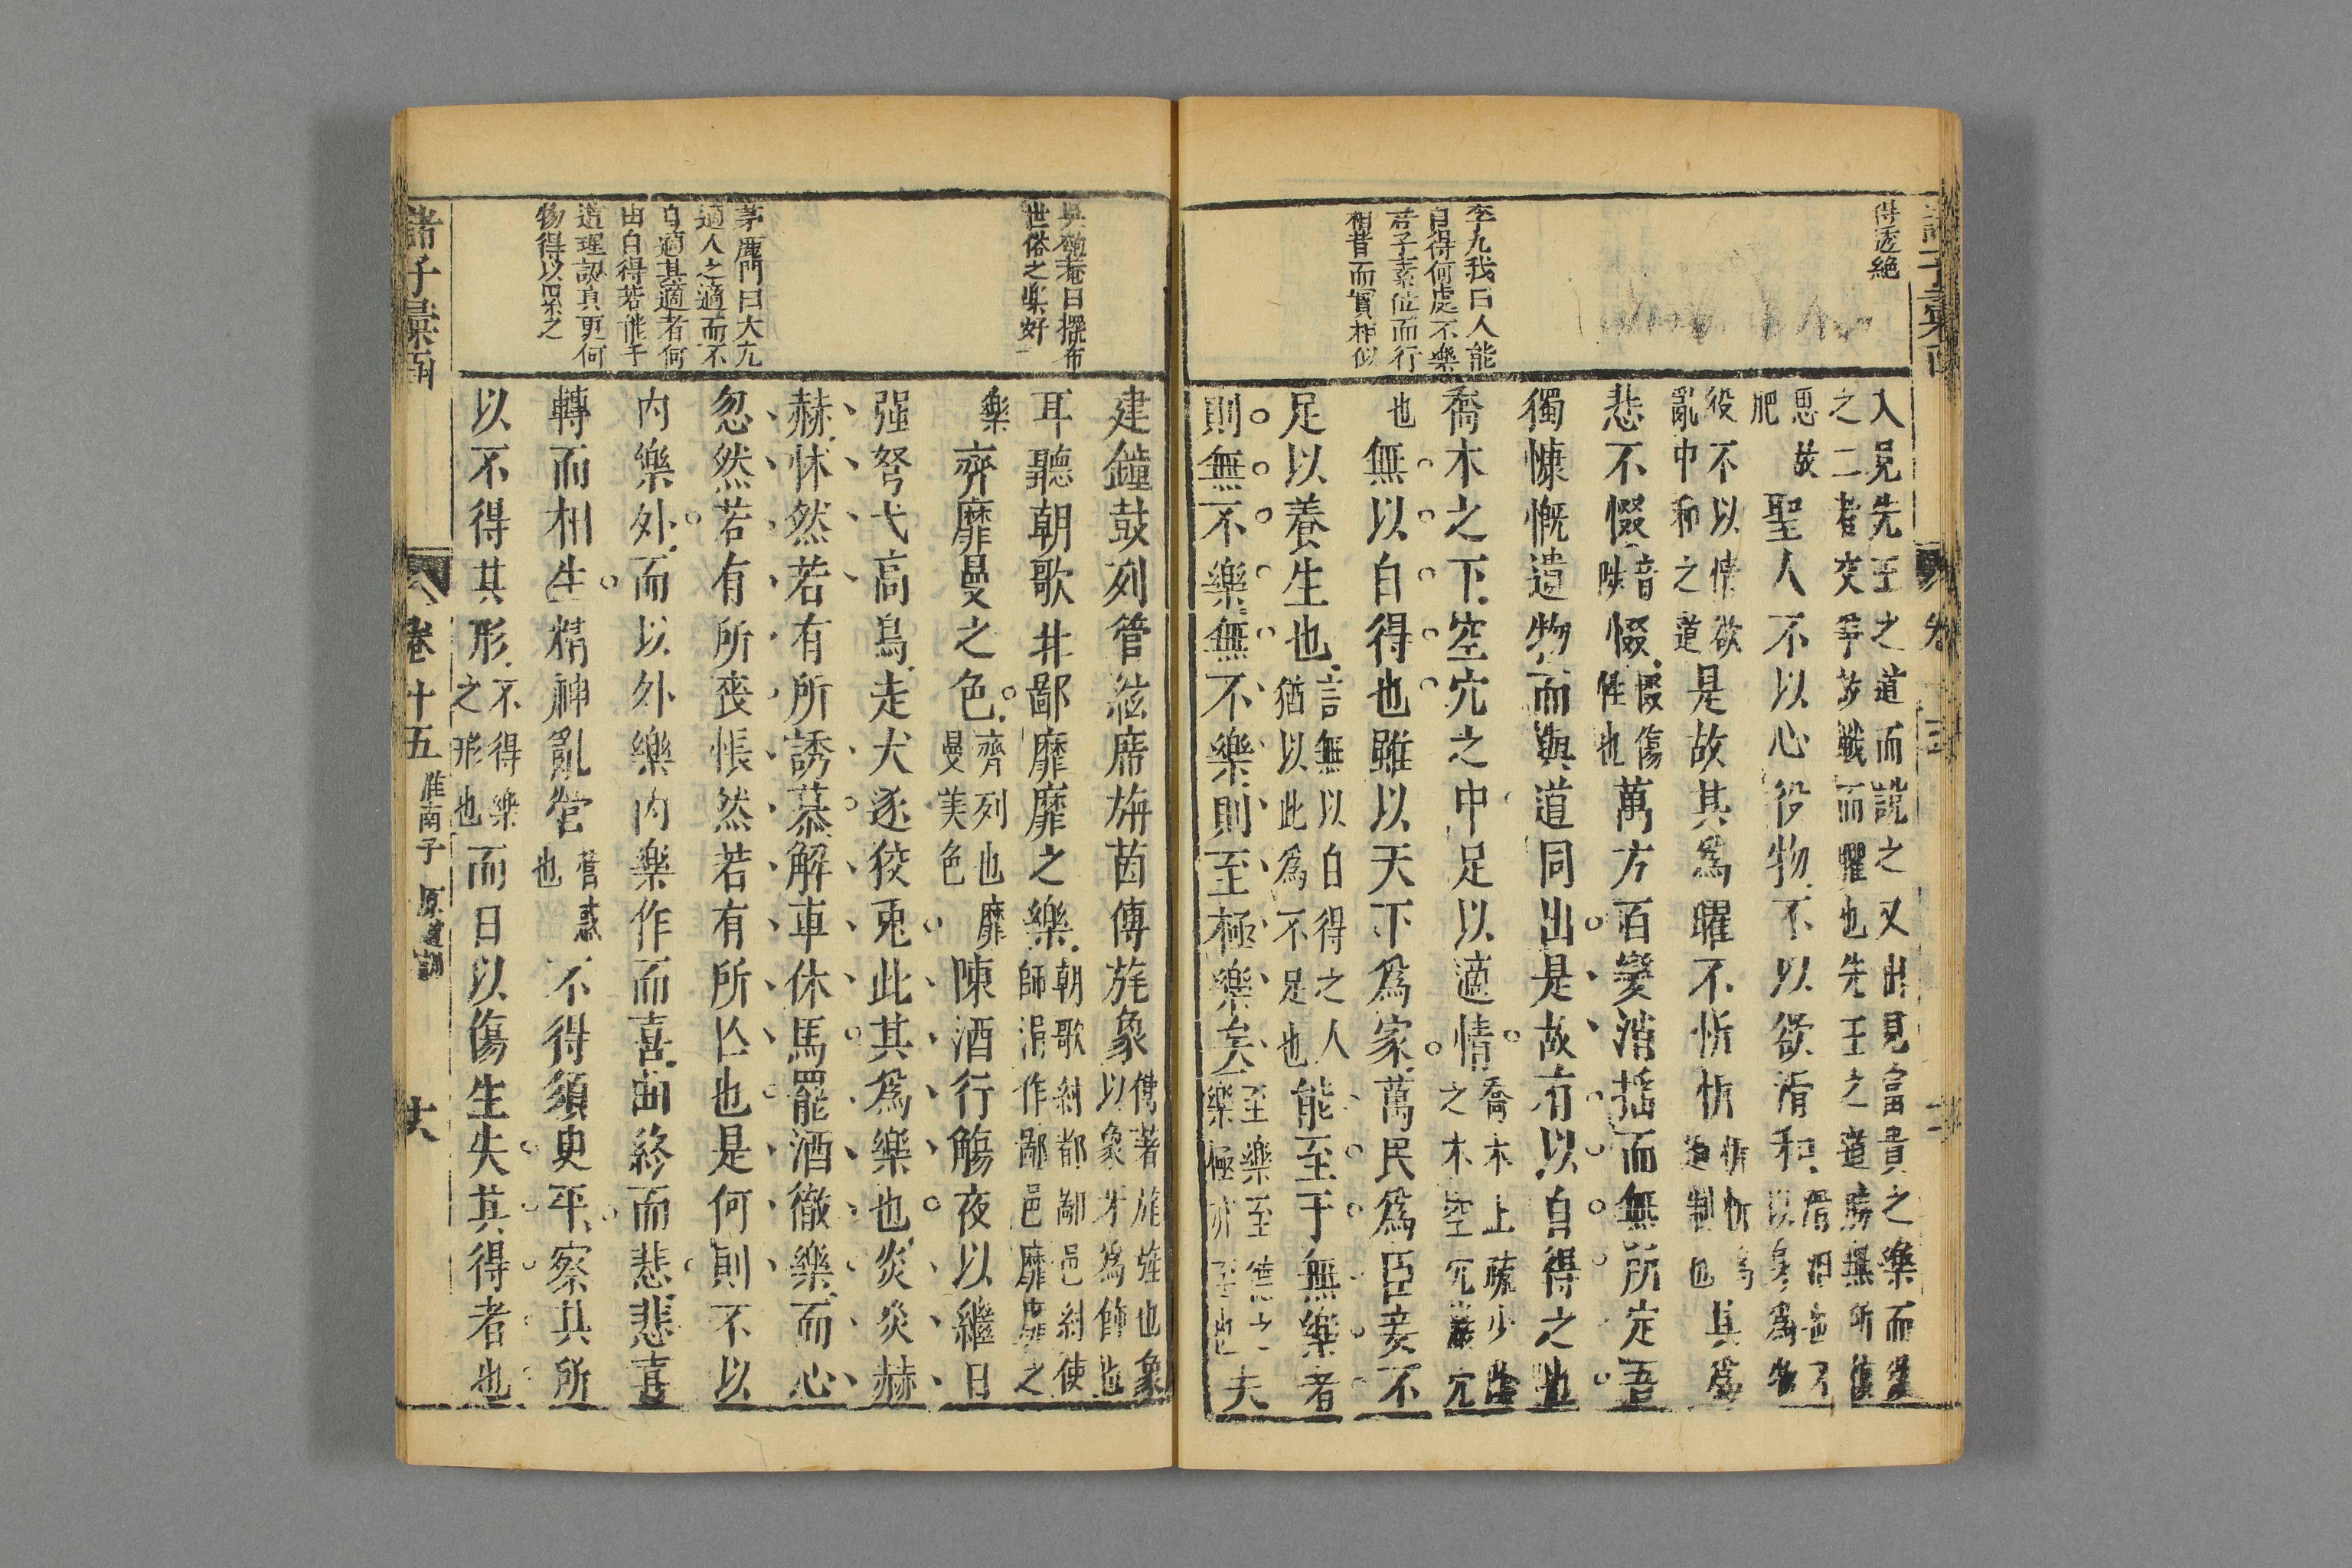 得透絕
李九我曰人能
自得何處不樂
君子素位而行
相昔而實相似
入見先王之道而說之又出見富貴之樂而
之二者交爭故戰而臞也先王之道勝無所
惡故
肥
聖人不以心役物不以欲滑和
役不以情欲
亂中和之道
是故其爲驩不忻忻
忻忻爲
過制也
其爲
悲不惙
音
惙惙
惙傷
性也
萬方百變消搖而無所定吾
獨慷慨遺物而與道同出是故有以自得之也
喬木之下空穴之中足以適情
喬木上疏少陰
之木空穴巖穴
也
無以自得也雖以天下爲家萬民爲臣妾不
足以養生也
言無以自得之人
猶以此爲不足也
能至于無樂者
則無不樂無不樂則至極樂矣
至樂至
樂極亦至也
夫
吳匏菴曰擺布
世俗之樂好
茅鹿門曰大凢
適人之適而不
自適其適者何
由自得若能于
道理認真更何
物得以累之
建鐘鼓列管絃席旃茵傅旄象
傅著旄旌也象
以象牙爲飾也
耳聽朝歌北鄙靡靡之樂
朝歌紂都鄙邑紂使
師涓作鄙邑靡靡之
樂
齊靡曼之色
齊列也靡
曼美色
陳酒行觴夜以繼日
强弩弋高鳥走犬逐狡兎此其爲樂也炎炎赫
赫怵然若有所誘慕解車休馬罷酒徹樂而心
忽然若有所喪悵然若有所亾也是何則不以
內樂外而以外樂內樂作而喜曲終而悲悲喜
轉而相生精神亂營
營惑
也
不得須臾平察其所
以不得其形
不得樂
之形也
而日以傷生失其得者也
諸子彙函
卷十五
淮南子
原道訓